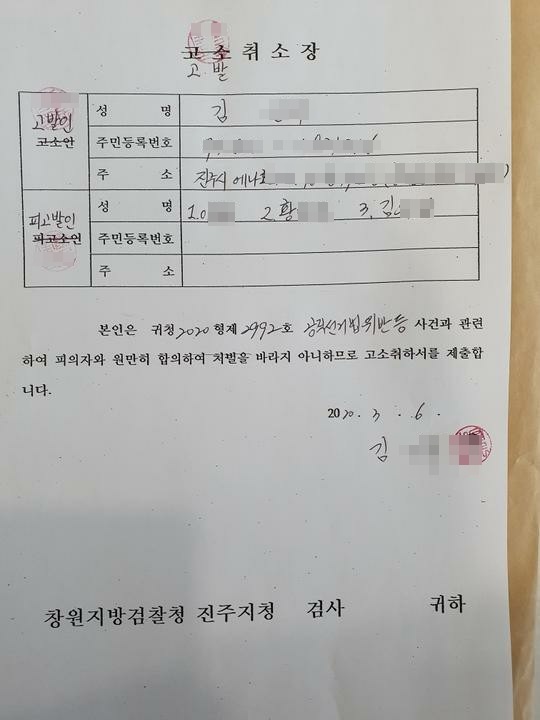 고소취소장
고발
고발인
고소인
성 명
김
주민등록번호
주 소
진주시 에나로
피고발인
피고소인
성 명
1.0 2.황 3.김
주민등록번호
주 소
본인은 귀청 2020 형제 2992호 공직선거법위반등 사건과 관련
하여 피의자와 원만히 합의하여 처벌을 바라지 아니하므로 고소취하서를 제출합
니다.
2020. 3. 6.
김
창원지방검찰청 진주지청 검사 귀하